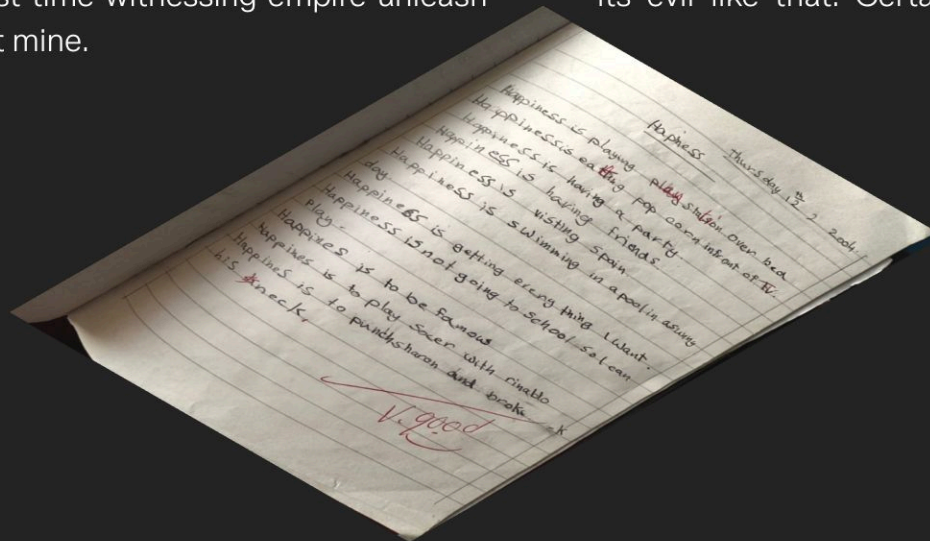 st time witnessing empire unleash
its evil like that. Certa
t mine.
Hapiness
Thursday 12/2 2004.
Happiness is playing play station over bed
Happiness is eatting pop corn infront of Tv.
Happiness is having a party
Happiness is having friends.
Happiness is visting spain
Happiness is swimming in a pool in asunny
day
Happiness is getting every thing I want.
Happiness is not going to school so I can
play.
Happines is to be famous
happines is to play Socer with rinaldo
Happines is to punch sharon and broke
his neck.
V. good